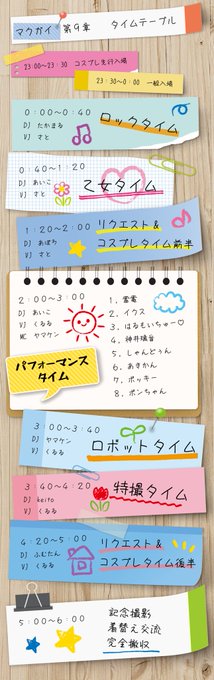 マクガイ 第9章 タイムテーブル
23:00～23:30 コスプレ先行入場
23:30～0:00 一般入場
0:00～0:40
DJ たかまる
VJ さと
ロックタイム
0:40～1:20
DJ あいこ
VJ さと
乙女タイム
1:20～2:00
DJ あぽろ
VJ さと
リクエスト&
コスプレタイム前半
2:00～3:00
DJ あいこ
VJ くるる
MC ヤマケン
パフォーマンス
タイム
1. 雷電
2. イクス
3. はるもいちゅー♡
4. 神井璃音
5. しゃんどぅん
6. あきかん
7. ポッキー
8. ポンちゃん
3:00～3:40
DJ ヤマケン
VJ くるる
ロボットタイム
3:40～4:20
DJ keito
VJ くるる
特撮タイム
4:20～5:00
DJ ふむたん
VJ くるる
リクエスト&
コスプレタイム後半
5:00～6:00
記念撮影
着替え交流
完全撤収